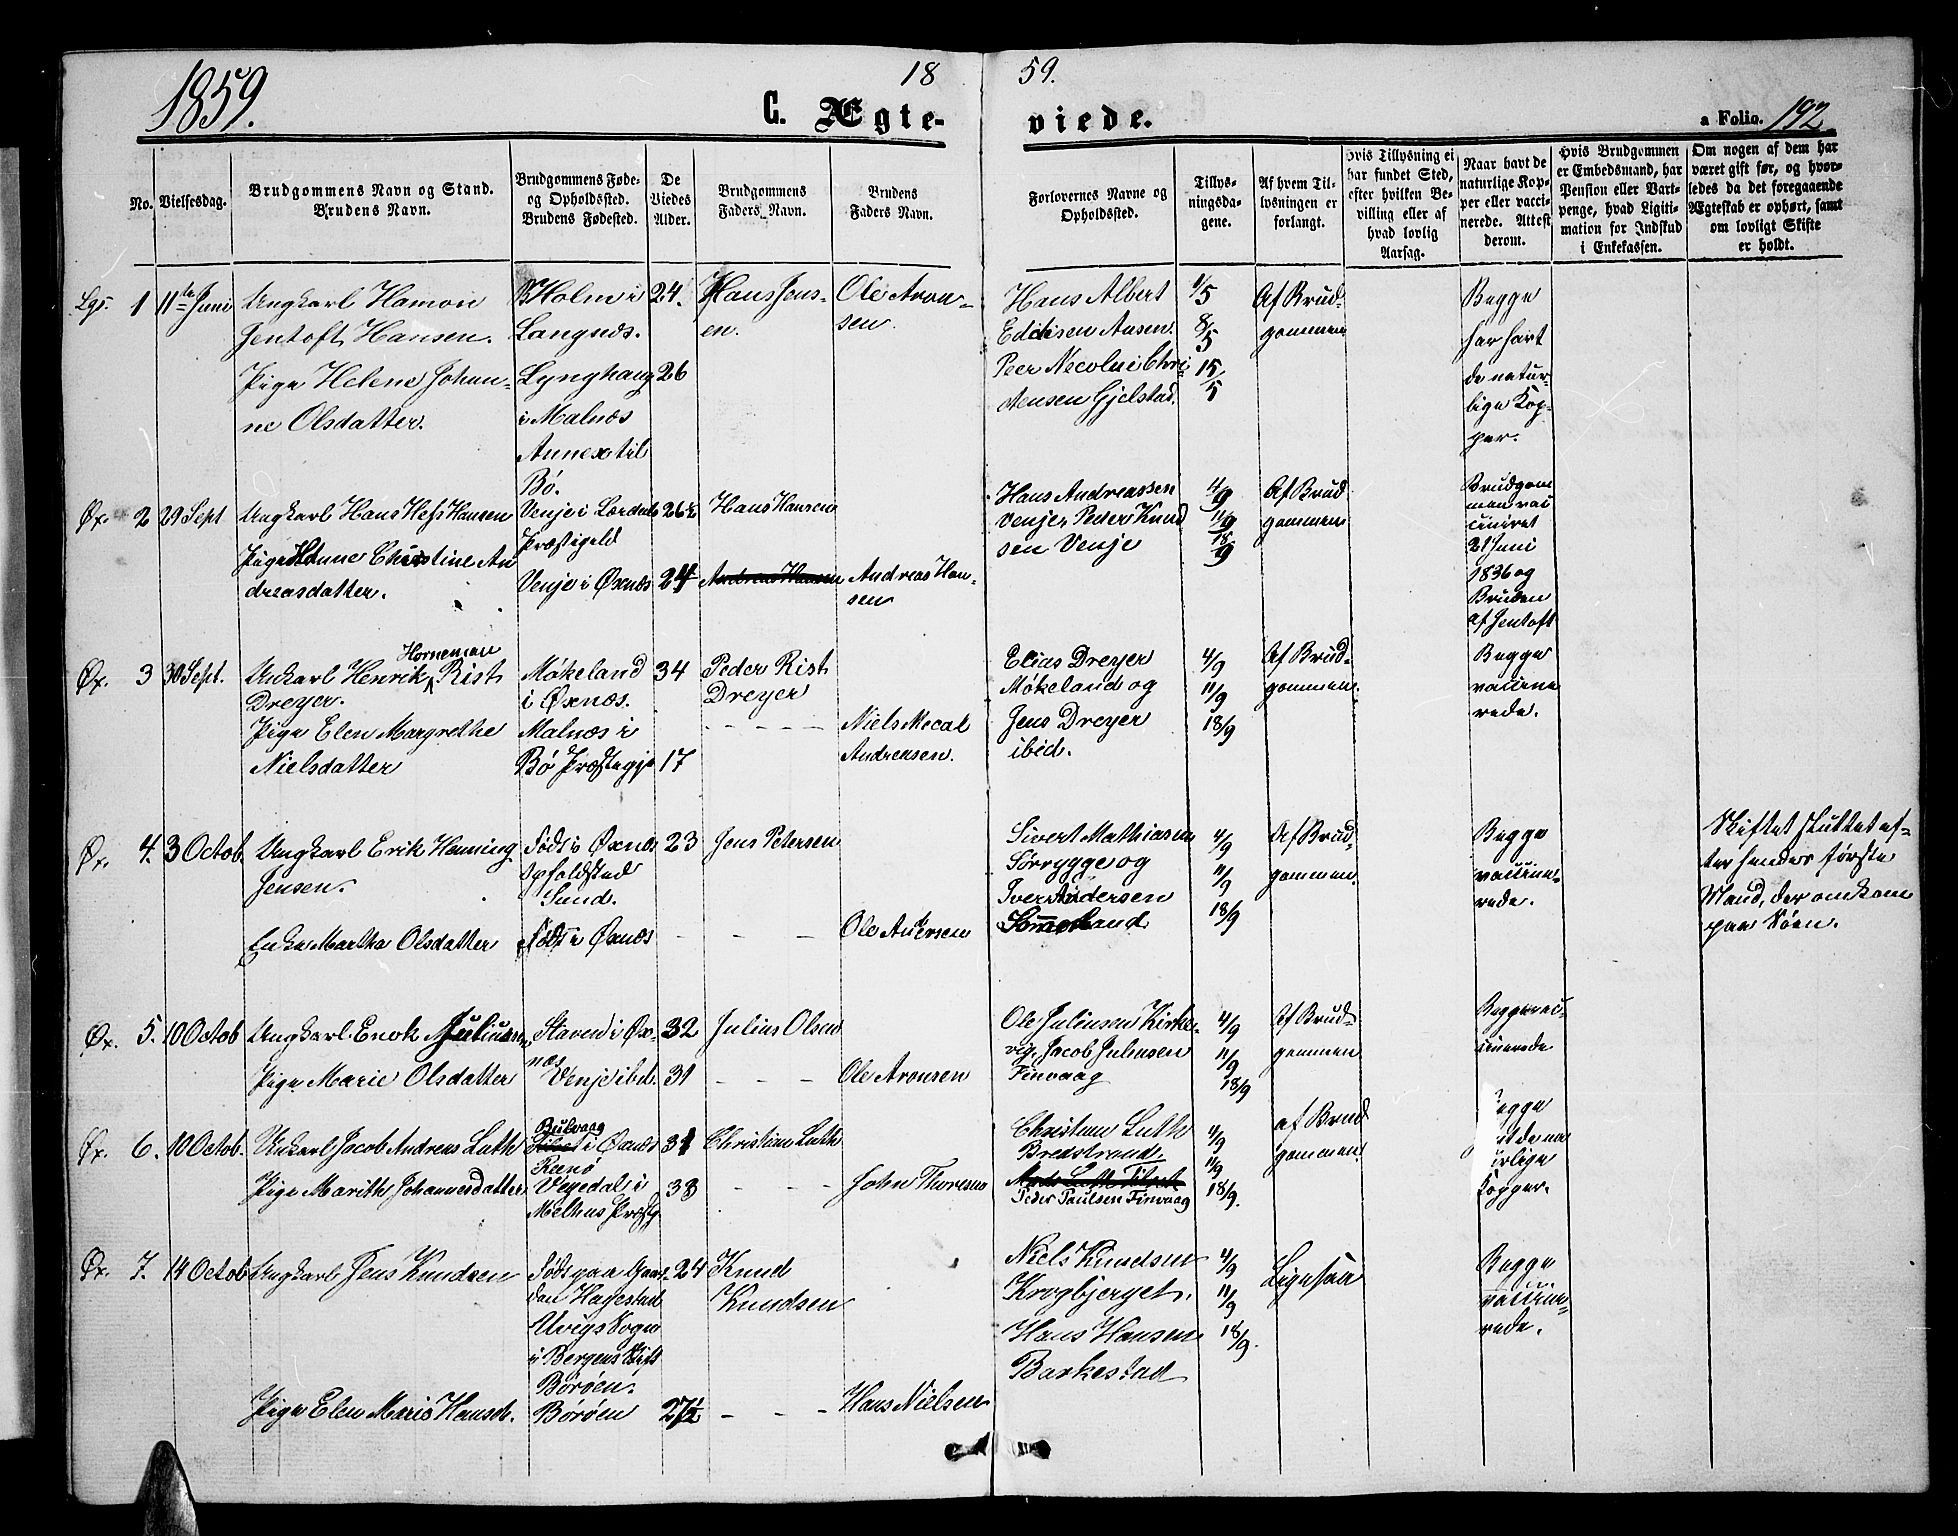 1859.
18
59.
G. Ægte-
viede.
a Folio. 192
No.
Vielsesdag.
Brudgommens Navn og Stand.
Brudens Navn.
Brudgommens Føde-
og Opholdssted.
Brudens Fødested.
De
Viedes
Alder.
Brudgommens
Faders Navn.
Brudens
Faders Navn.
Forlovernes Navne og
Opholdssted.
Tillys-
ningsda-
gene.
Af hvem Til-
lysningen er
forlangt.
Hvis Tillysning ei
har fundet Sted,
efter hvilken Be-
villing eller af
hvad lovlig
Aarsag.
Naar havt de
naturlige Kop-
per eller vacci-
nerede. Attest
derom.
Hvis Brudgommen
er Embedsmand, har
Pension eller Vart-
penge, hvad Ligiti-
mation for Indskud
i Enkekassen.
Om nogen af dem har
været gift før, og hvor-
ledes da det foregaaende
Ægteskab er ophørt, samt
om lovligt Skifte
er holdt.
Lgs. 1 11te Juni
Ungkarl Hamon
Jentoft Hansen.
Pige Helene Johan-
ne Olsdatter.
Holm i
Langnæs.
Lynghaug
i Malnæs
Annex til
Bø.
24.
26
Hans Jens-
en.
Ole Aron-
sen.
Hans Albert
Edisen Aasen.
Peer Necolai Chri-
stensen Gjelstad.
1/5
8/5
15/5
Af Brud-
gommen
Begge
har havt
de natur-
lige Kop-
per.
Øx. 2 29 Sept
Ungkarl Hans Hess Hansen
Pige Hanne Christine An
dreasdatter.
Venje i Lærdals
Præstegeld
Venje i Øxnæs
26½
24
Hans Hansen
Andreas Hansen
Andreas Han-
sen
Hans Andreassen
Venje, Peder Knud
sen Venje
4/9
11/9
18/9
Af Brud
gommen
Brudgom
men vac
cineret
21 Juni
1836 og
Bruden
af Jentoft
Øx. 3 30 Sept.
Horneman
Unkarl Henrik Rist
Dreyer.
Pige Elen Margrethe
Nielsdatter
Møkeland
i Øxnæs.
Malnæs i
Bø Præstegje
34
17
Peder Rist
Dreyer
Niels Mecal
Andreasen.
Elias Dreyer
Møkeland og
Jens Dreyer
ibid.
4/9
11/9
18/9
Af Brud-
gommen.
Begge
vaccine
rede.
Øx. 4. 3 Octob
Ungkarl Erik Henning
Jensen.
Enke Martha Olsdatter
Føds i Øxnæs
Opholdsted
Sund.
Føds i Øxnæs
23
Jens Petersen
Ole Andersen
Sivert Mathiasen
Sørrygge og
Iver Andersen
Sommeland
4/9
11/9
18/9
Af Brud-
gommen.
Begge
vaccine-
rede.
Skiftet sluttet ef-
ter hendes første
Mand, der omkom
paa Søen.
Øx. 5. 10 Octob
Ungkarl Enok Juliusen
Pige Marie Olsdatter
Staven i Øx-
næs
Venje ibd.
32
31
Julius Olsen
Ole Aronsen
Ole Juliusen Kirke-
vig, Jacob Juliusen
Finvaag
4/9
11/9
18/9
Af Brud-
gommen
Begge vac-
cinerede
Øx. 6. 10 Octob.
Unkarl Jacob Andreas Luth
Pige Marith Johannesdatter
Bulvaag
i Øxnæs
Reenø
Vegedal i
Melhus Præstg
31
38
Christian Luth
John Thoresen
Christian Luth
Bredstrand,
Peder Paulsen Finvaag
4/9
11/9
18/9.
af Brud
gommen.
Begge
de na
urlige
Kopper.
Øx. 7. 14 Octob
Ungkarl Jens Knudsen
Pige Elen Maris Hansd.
Føds paa Gaar-
den Hagestad
Uvigs Sogn
i Bergens Stift
Børøen.
Børøen
24
27½
Knud
Knudsen
Hans Nielsen
Niels Knudsen
Krogbjerget.
Hans Hansen
Barkestad
4/9
11/9
18/9.
Ligesaa
Begge
vaccine-
rede.